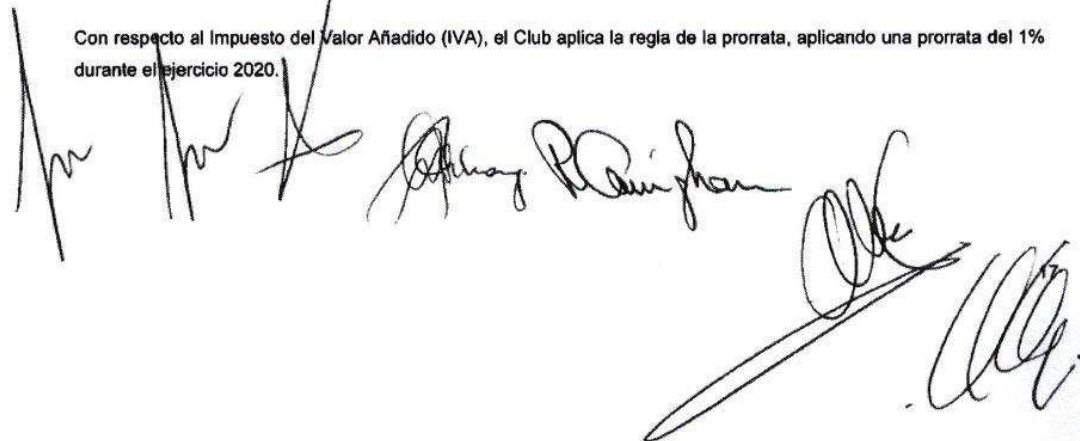 Con respecto al Impuesto del Valor Añadido (IVA), el Club aplica la regla de la prorrata, aplicando una prorrata del 1%
durante el ejercicio 2020.
17